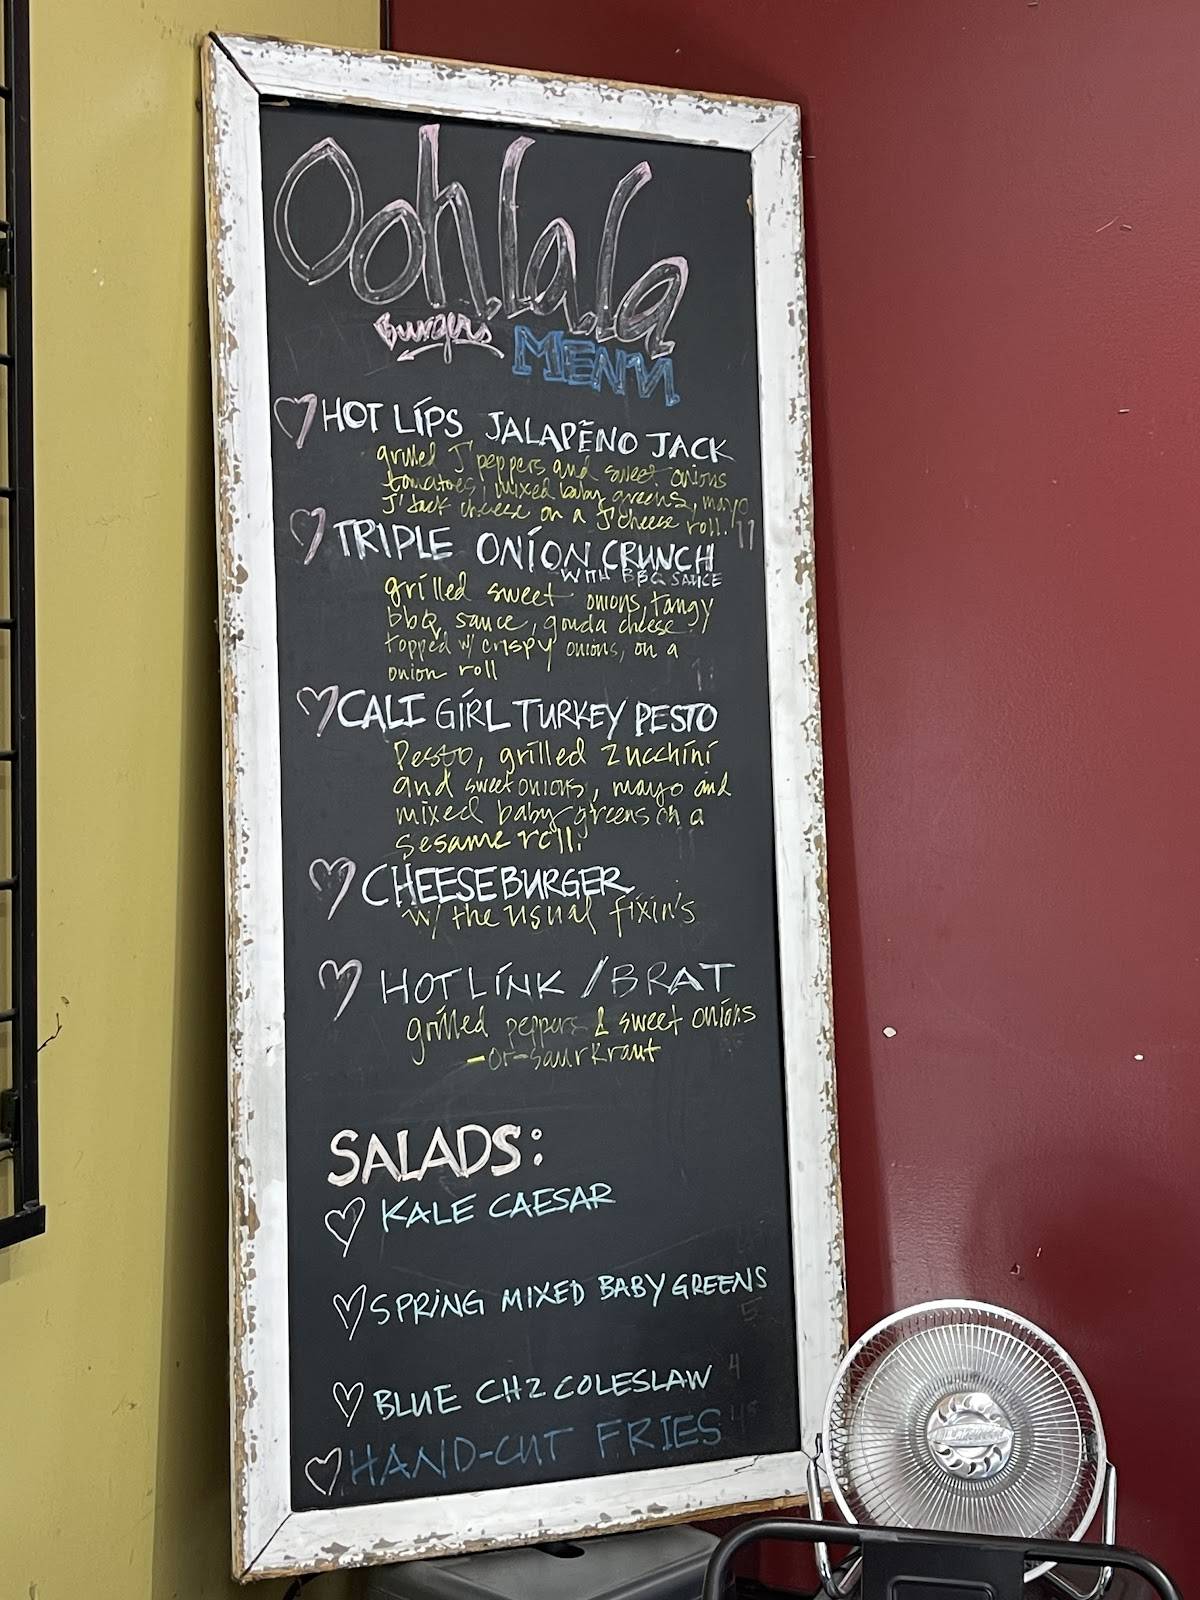 Ooh.la.la
Burgers MENU
HOT LIPS JALAPEÑO JACK
grilled J' peppers and sweet onions
tomatoes, mixed baby greens, mayo
J' Jack cheese on a J' cheese roll. 11
TRIPLE ONION CRUNCH
WITH BBQ SAUCE
grilled sweet onions, tangy
bbq sauce, gouda cheese
topped w/ crispy onions, on a
onion roll
CALI GIRL TURKEY PESTO
Pesto, grilled zucchini
and sweet onions, mayo and
mixed baby greens on a
sesame roll. 11
CHEESEBURGER
w/ the usual fixin's
HOT LINK / BRAT
grilled peppers & sweet onions
-or- saurkraut
SALADS:
KALE CAESAR
SPRING MIXED BABY GREENS
5
BLUE CHZ COLESLAW 4
HAND-CUT FRIES